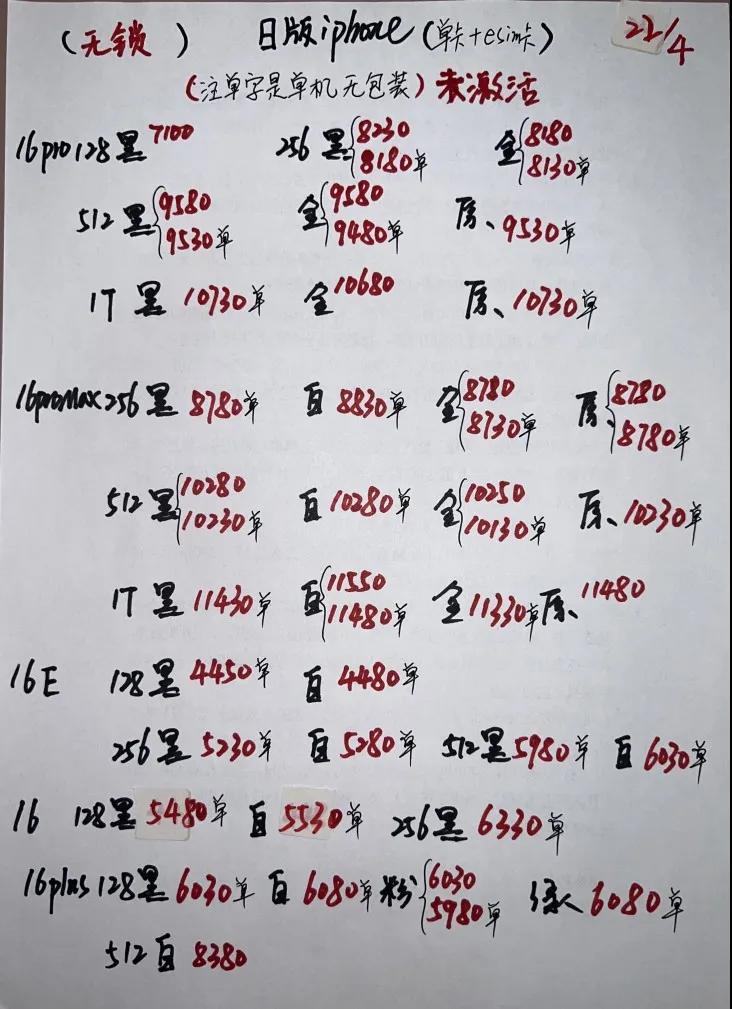 （无锁） 日版iphone（单卡+esim卡） 22/4
（注单字是单机无包装）未激活
16pro128黑7100 256黑{8230 8180单 金{8180 8130单
512黑{9580 9530单 金{9580 9480单 原、9530单
1T黑10730单 金10680 原、10730单
16promax256黑8780单 白8830单 金{8780 8730单 原、{8780 8780单
512黑{10280 10230单 白10280单 金{10250 10130单 原、10230单
1T黑11430单 白{11550 11480单 金11330单 原、11480
16E 128黑4450单 白4480单
256黑5230单 白5280单 512黑5980单 白6030单
16 128黑5480单 白5530单 256黑6330单
16plus128黑6030单 白6080单 粉{6030 5980单 绿6080单
512白8380